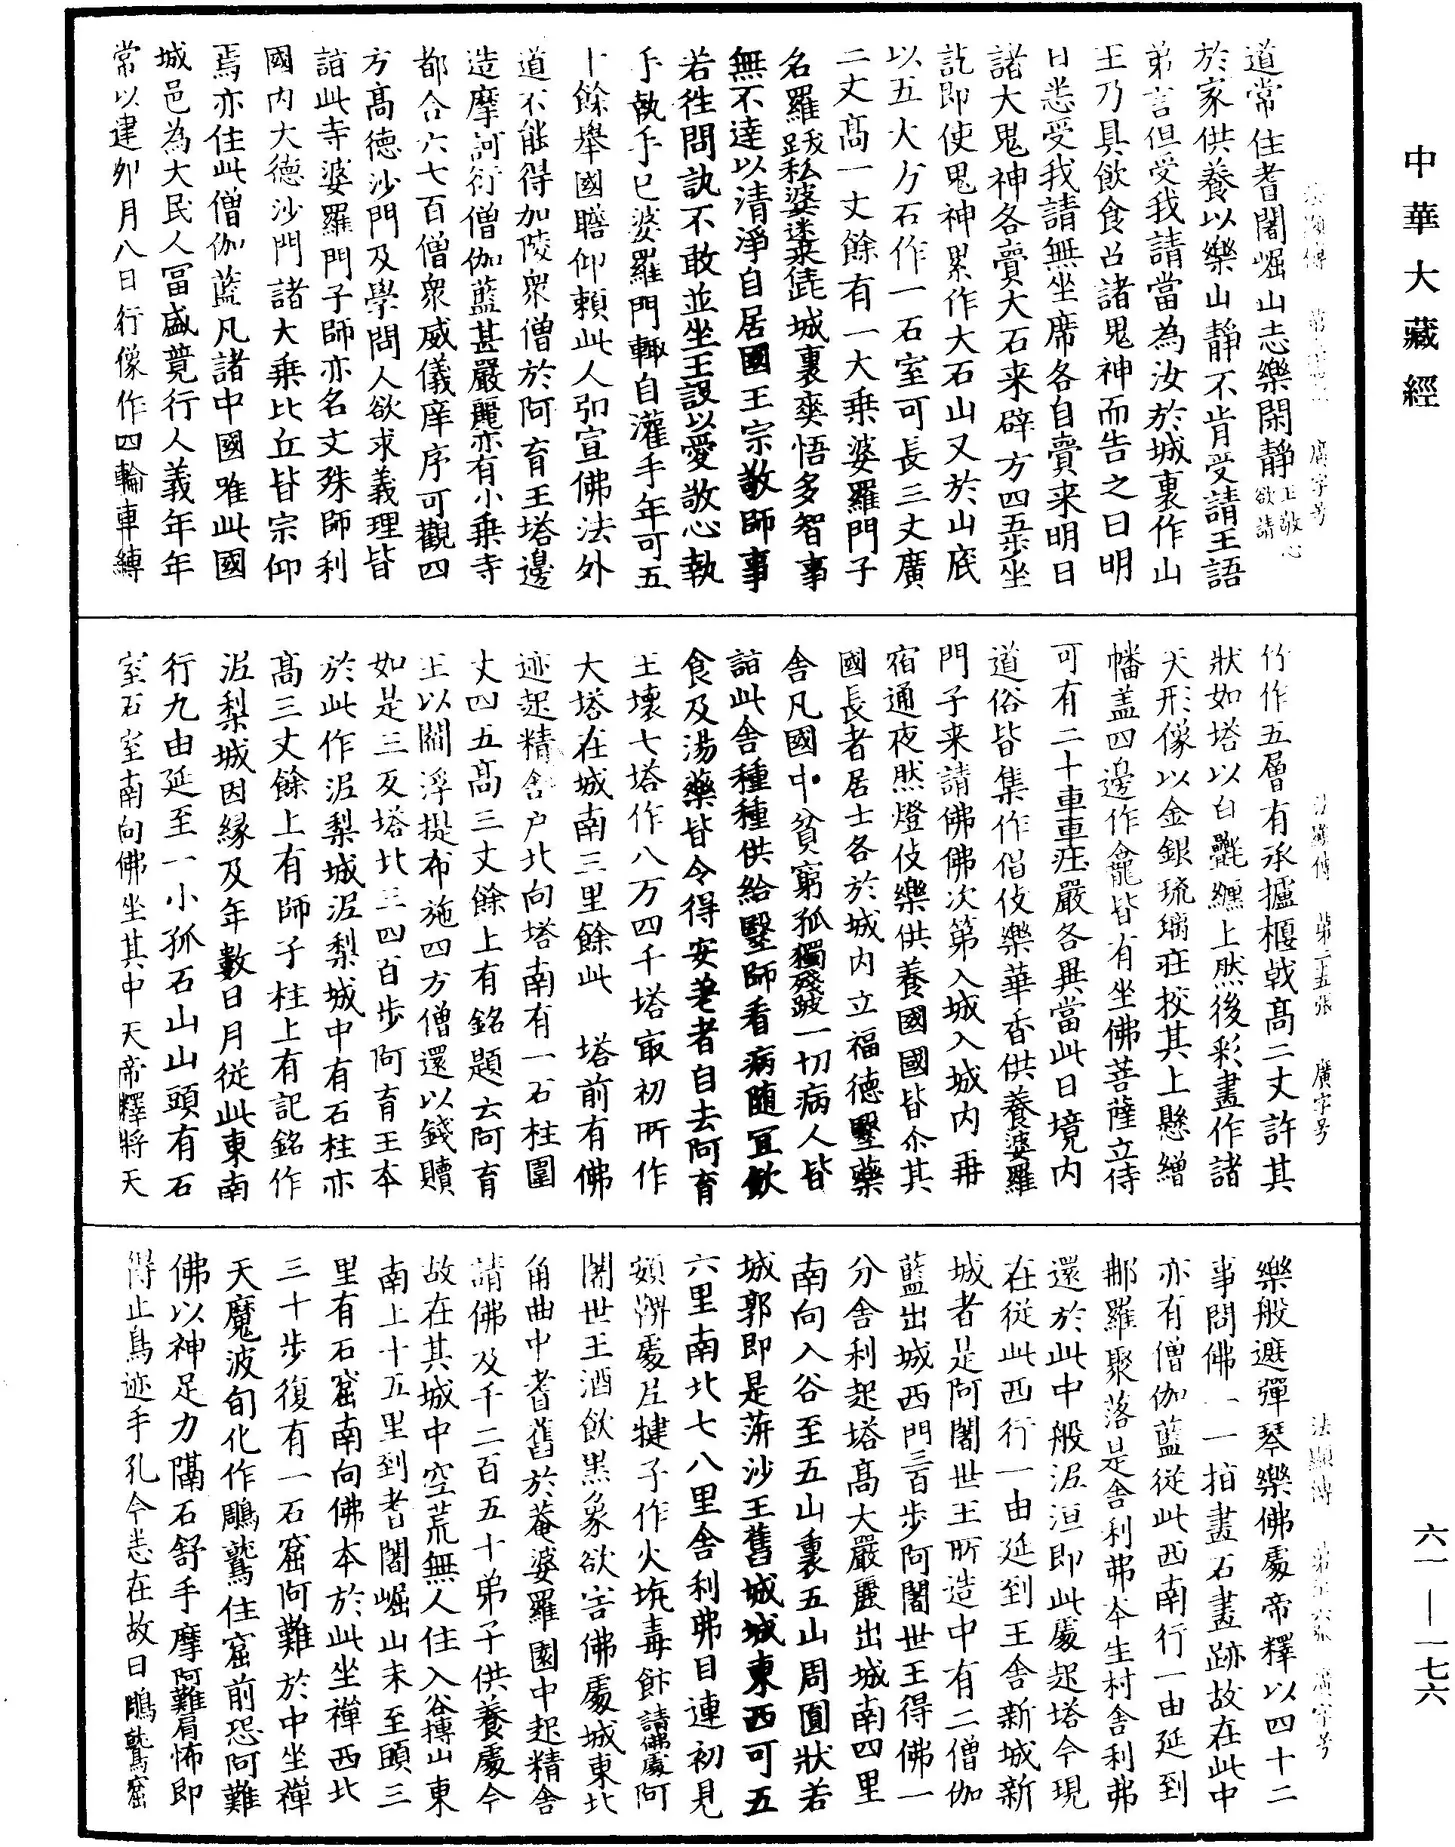 中華大藏經
道常住耆闍崛山志樂閑靜王敬心欲請
於家供養以樂山靜不肯受請王語
弟言但受我請當為汝於城裏作山
王乃具飲食召諸鬼神而告之曰明
日悉受我請無坐席各自賷来明日
諸大鬼神各賷大石来辟方四五步坐
訖即使鬼神累作大石山又於山底
以五大方石作一石室可長三丈廣
二丈高一丈餘有一大乗婆羅門子
名羅䟦私婆迷来此城裏爽悟多智事
無不達以清淨自居國王宗敬師事
若徃問訊不敢並坐王設以愛敬心執
手執手已婆羅門輙自灌手年可五
十餘舉國瞻仰頼此人弘宣佛法外
道不能得加陵衆僧於阿育王塔邊
造摩訶衍僧伽藍甚嚴麗亦有小乗寺
都合六七百僧衆威儀庠序可觀四
方高德沙門及學問人欲求義理皆
詣此寺婆羅門子師亦名文殊師利
國内大德沙門諸大乗比丘皆宗仰
焉亦住此僧伽藍凡諸中國唯此國
城邑為大民人冨盛競行人義年年
常以建夘月八日行像作四輪車縛
竹作五層有承攎椻戟高二丈許其
狀如塔以白氎纒上然後彩畫作諸
天形像以金銀琉璃莊挍其上懸繒
幡盖四邊作龕皆有坐佛菩薩立侍
可有二十車車莊嚴各異當此日境内
道俗皆集作倡伎樂華香供養婆羅
門子来請佛佛次第入城入城内再
宿通夜然燈伎樂供養國國皆尒其
國長者居士各於城内立福德醫藥
舍凡國中貧窮孤獨殘跛一切病人皆
詣此舍種種供給醫師看病随冝飲
食及湯藥皆令得安差者自去阿育
王壊七塔作八万四千塔㝡初所作
大塔在城南三里餘此塔前有佛
迹起精舍户北向塔南有一石柱圍
丈四五高三丈餘上有銘題云阿育
王以閻浮提布施四方僧還以錢贖
如是三反塔北三四百步阿育王本
於此作泥梨城泥梨城中有石柱亦
高三丈餘上有師子柱上有記銘作
泥梨城因緣及年數日月從此東南
行九由延至一小孤石山山頭有石
室石室南向佛坐其中天帝釋將天
法顯傳 第二五張 廣字号
樂般遮彈琴樂佛處帝釋以四十二
事問佛一一指畫石畫跡故在此中
亦有僧伽藍從此西南行一由延到
那羅聚落是舍利弗本生村舍利弗
還於此中般泥洹即此處起塔今現
在從此西行一由延到王舍新城新
城者是阿闍世王所造中有二僧伽
藍出城西門三百步阿闍世王得佛一
分舍利起塔高大嚴麗出城南四里
南向入谷至五山裏五山周圓狀若
城郭即是蓱沙王舊城城東西可五
六里南北七八里舍利弗目連初見
頞鞞處尼犍子作火坑毒飰請佛處阿
闍世王酒飲黒象欲害佛處城東北
角曲中耆舊於菴婆羅園中起精舍
請佛及千二百五十弟子供養處今
故在其城中空荒無人住入谷搏山東
南上十五里到耆闍崛山未至頭三
里有石窟南向佛本於此坐禪西北
三十步復有一石窟阿難於中坐禪
天魔波旬化作鵰鷲住窟前恐阿難
佛以神足力隔石舒手摩阿難肩怖即
得止鳥迹手孔今悉在故曰鵰鷲窟
法顯傳 第二六張 廣字号
六一—一七六